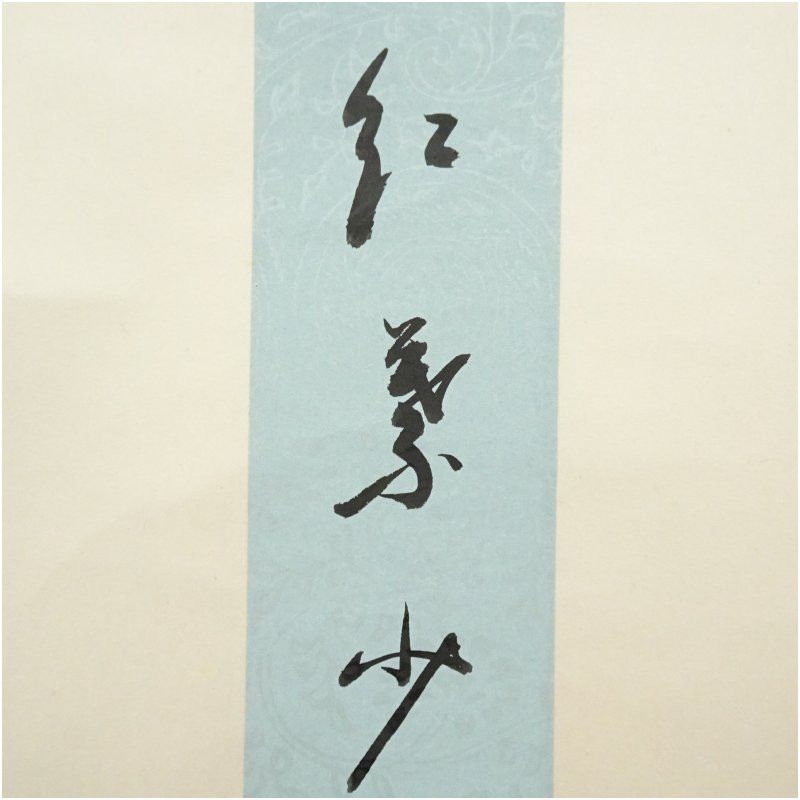 紅葉少